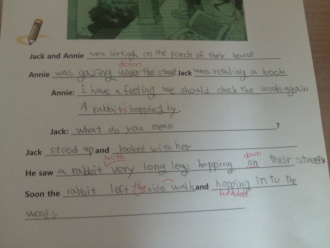 Jack and Annie was sixtigh on the porch of their house
down
Annie was gazing the street Jack was reading a book
Annie: I have a feeling we should check the woods again
A rabbit is hopping by
Jack: what do you mean ?
Jack stood up and looked with her
with down
He saw a rabbit very long legs hopping on their street
Soon the rabbit left the side walk and hopping in to the
headed
woods